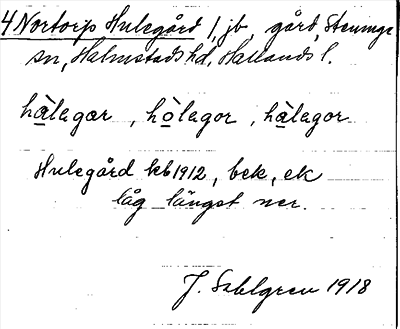 4 Nortorp Hulegård 1, jb, gård, Steninge
sn, Halmstads hd, Hallands l.
hålagar, hòlagor, hålagor
Hulegård kb 1912, bek, ek
låg längst ner.
J. Sahlgren 1918